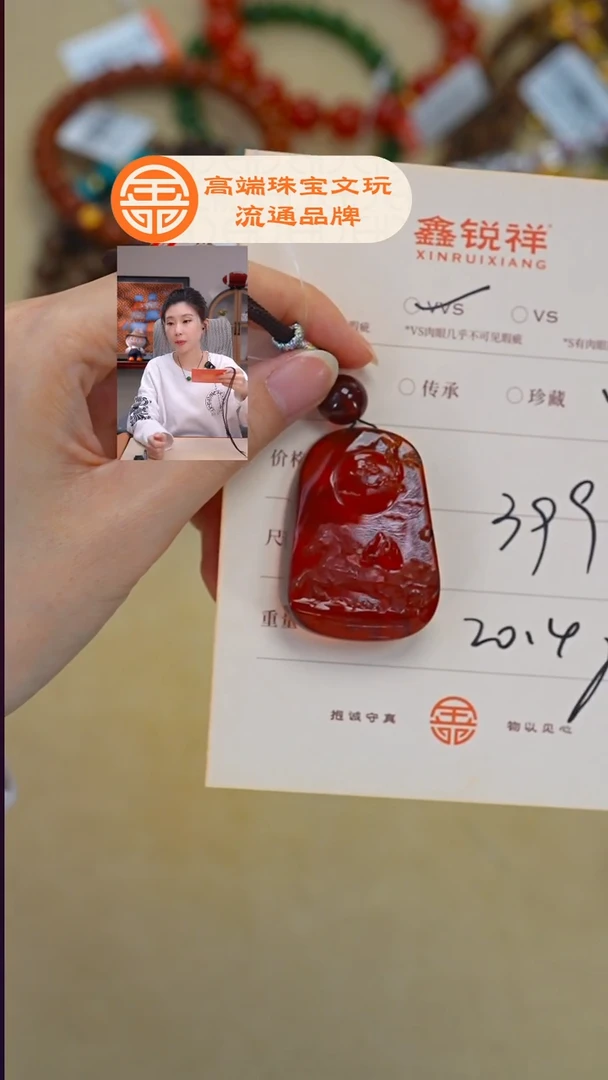 高端珠宝文玩
流通品牌
鑫锐祥
XINRUIXIANG
VVS
VS
*VS肉眼几乎不可见瑕疵
传承
珍藏
399
20.4
抱诚守真
物以见心